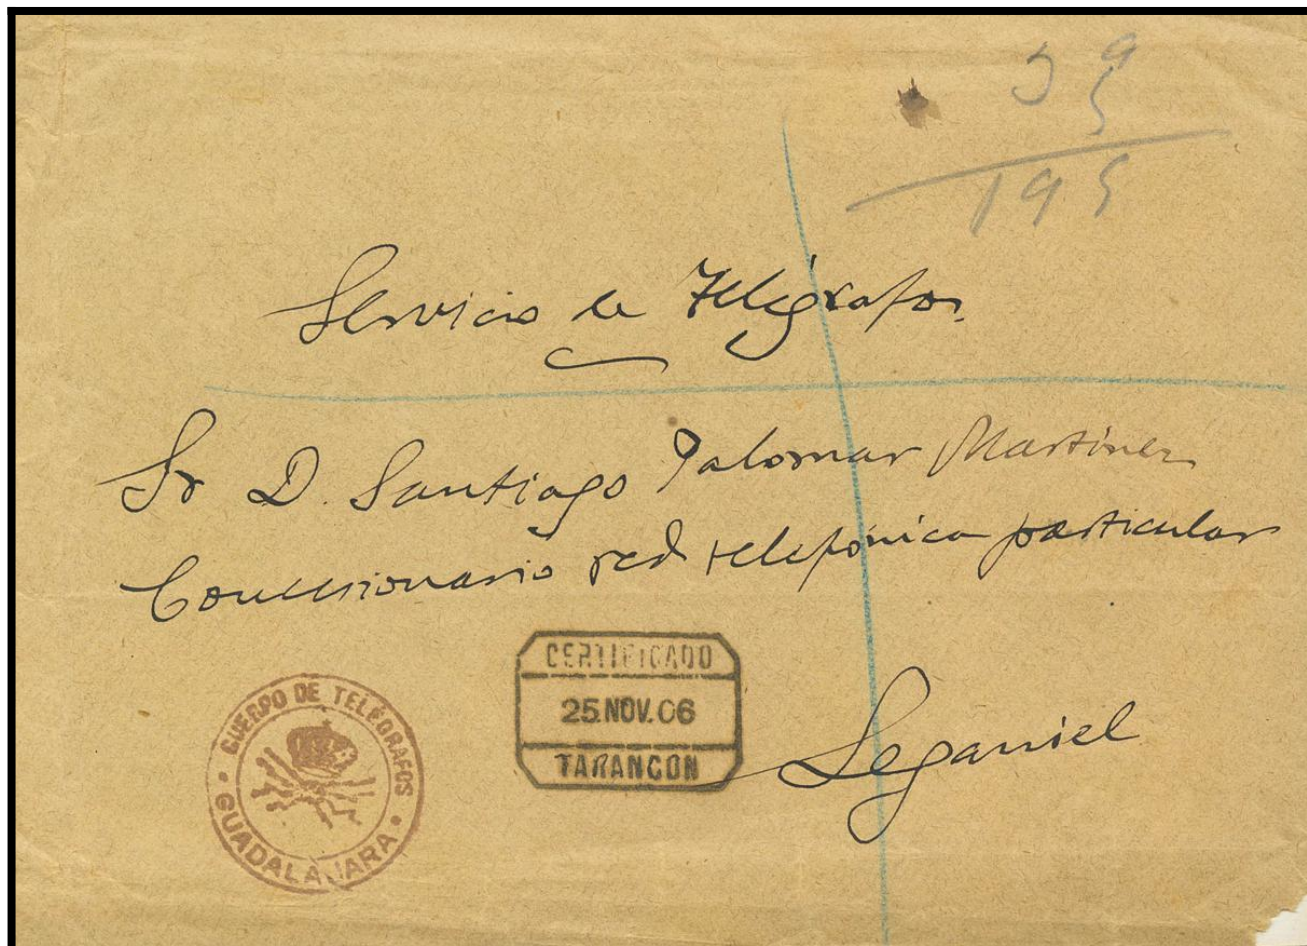 59
5
195
Servicio de Telégrafos.
Sr D. Santiago Palomar Martinez
Concesionario red telefónica particular
CERTIFICADO
25.NOV.06
TARANCON
Leganiel
CUERPO DE TELEGRAFOS
GUADALAJARA